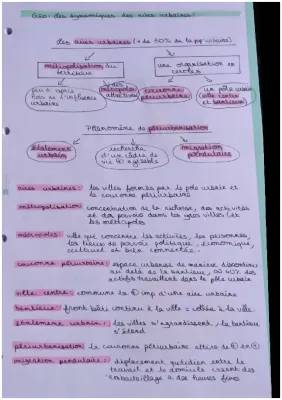 Géo: des dynamiques des aires urbaines
des aires urbaines (+ de 80% de la pop urbaine)
métropolisation du territoire
une organisation en cercles
hors de l'influence urbaine
des métropoles attractives
couronne périurbaine
un pôle urbain (ville centre et banlieue)
Phénomène de périurbanisation
étalement urbain
recherche d'un cadre de vie + agréable
migration pendulaire
aires urbaines: les villes formées par le pôle urbain et
la couronne périurbaine
métropolisation: concentration de la richesse, des activités
et des pouvoirs dans les grandes villes (et
les métropoles
métropoles: ville qui concentre les activités, les personnes,
les lieux de pouvoir politique, économique,
culturel et bien connectée.
couronne périurbaine: espace urbanisé de manière discontinu
au delà de la banlieue, où 40% des
actifs travaillent dans le pôle urbain
ville centre: commune la + imp d'une aire urbaine
banlieue: front bâti continu à la ville = collée à la ville
étalement urbain: les villes s'agrandissent, la banlieue
s'étend
périurbanisation: la couronne périurbaine attire de + en +
migration pendulaire: déplacement quotidien entre le
travail et le domicile créant des
embouteillage à des heures fixes